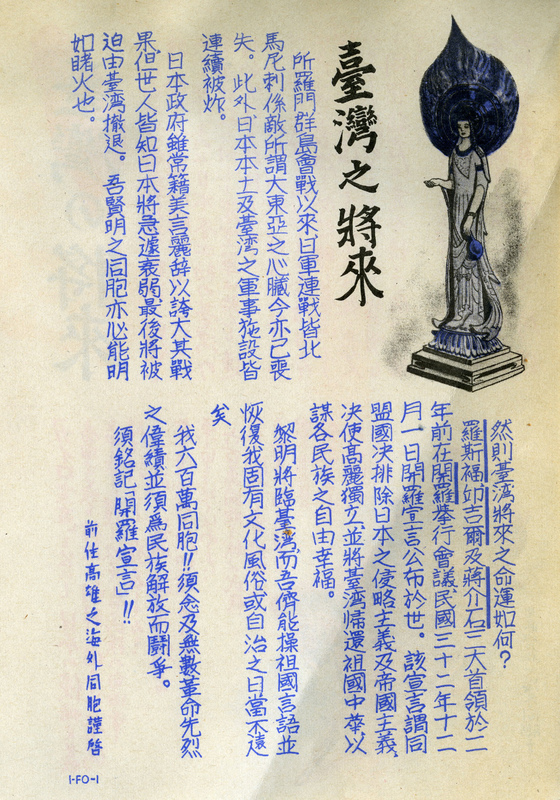 臺灣之將來
所羅門群島會戰以來日軍連戰皆北
馬尼剌係敵所謂大東亞之心臟今亦已喪
失。此外日本本土及臺湾之軍事施設皆
連續被炸。
日本政府雖常籍美言麗辞以誇大其戰
果但世人皆知日本將急遽衰弱最後將被
迫由臺湾撤退。吾賢明之同胞亦必能明
如睹火也。
然則臺湾將來之命運如何?
羅斯福邱吉爾及蔣介石三大首領於二
年前在開羅舉行會議民國三十二年十二
月一日開羅宣言公布於世。該宣言謂同
盟國决排除日本之侵略主義及帝國主義、
决使高麗獨立並將臺湾帰還祖國中華以
謀各民族之自由幸福。
黎明將臨臺湾而吾儕能操祖國言語並
恢復我固有文化風俗或自治之日當不遠
矣
我六百萬同胞!!須念及無數革命先烈
之偉績並須為民族解放而鬪爭。
須銘記「開羅宣言」!!
前住高雄之海外同胞謹啓
1-FO-1